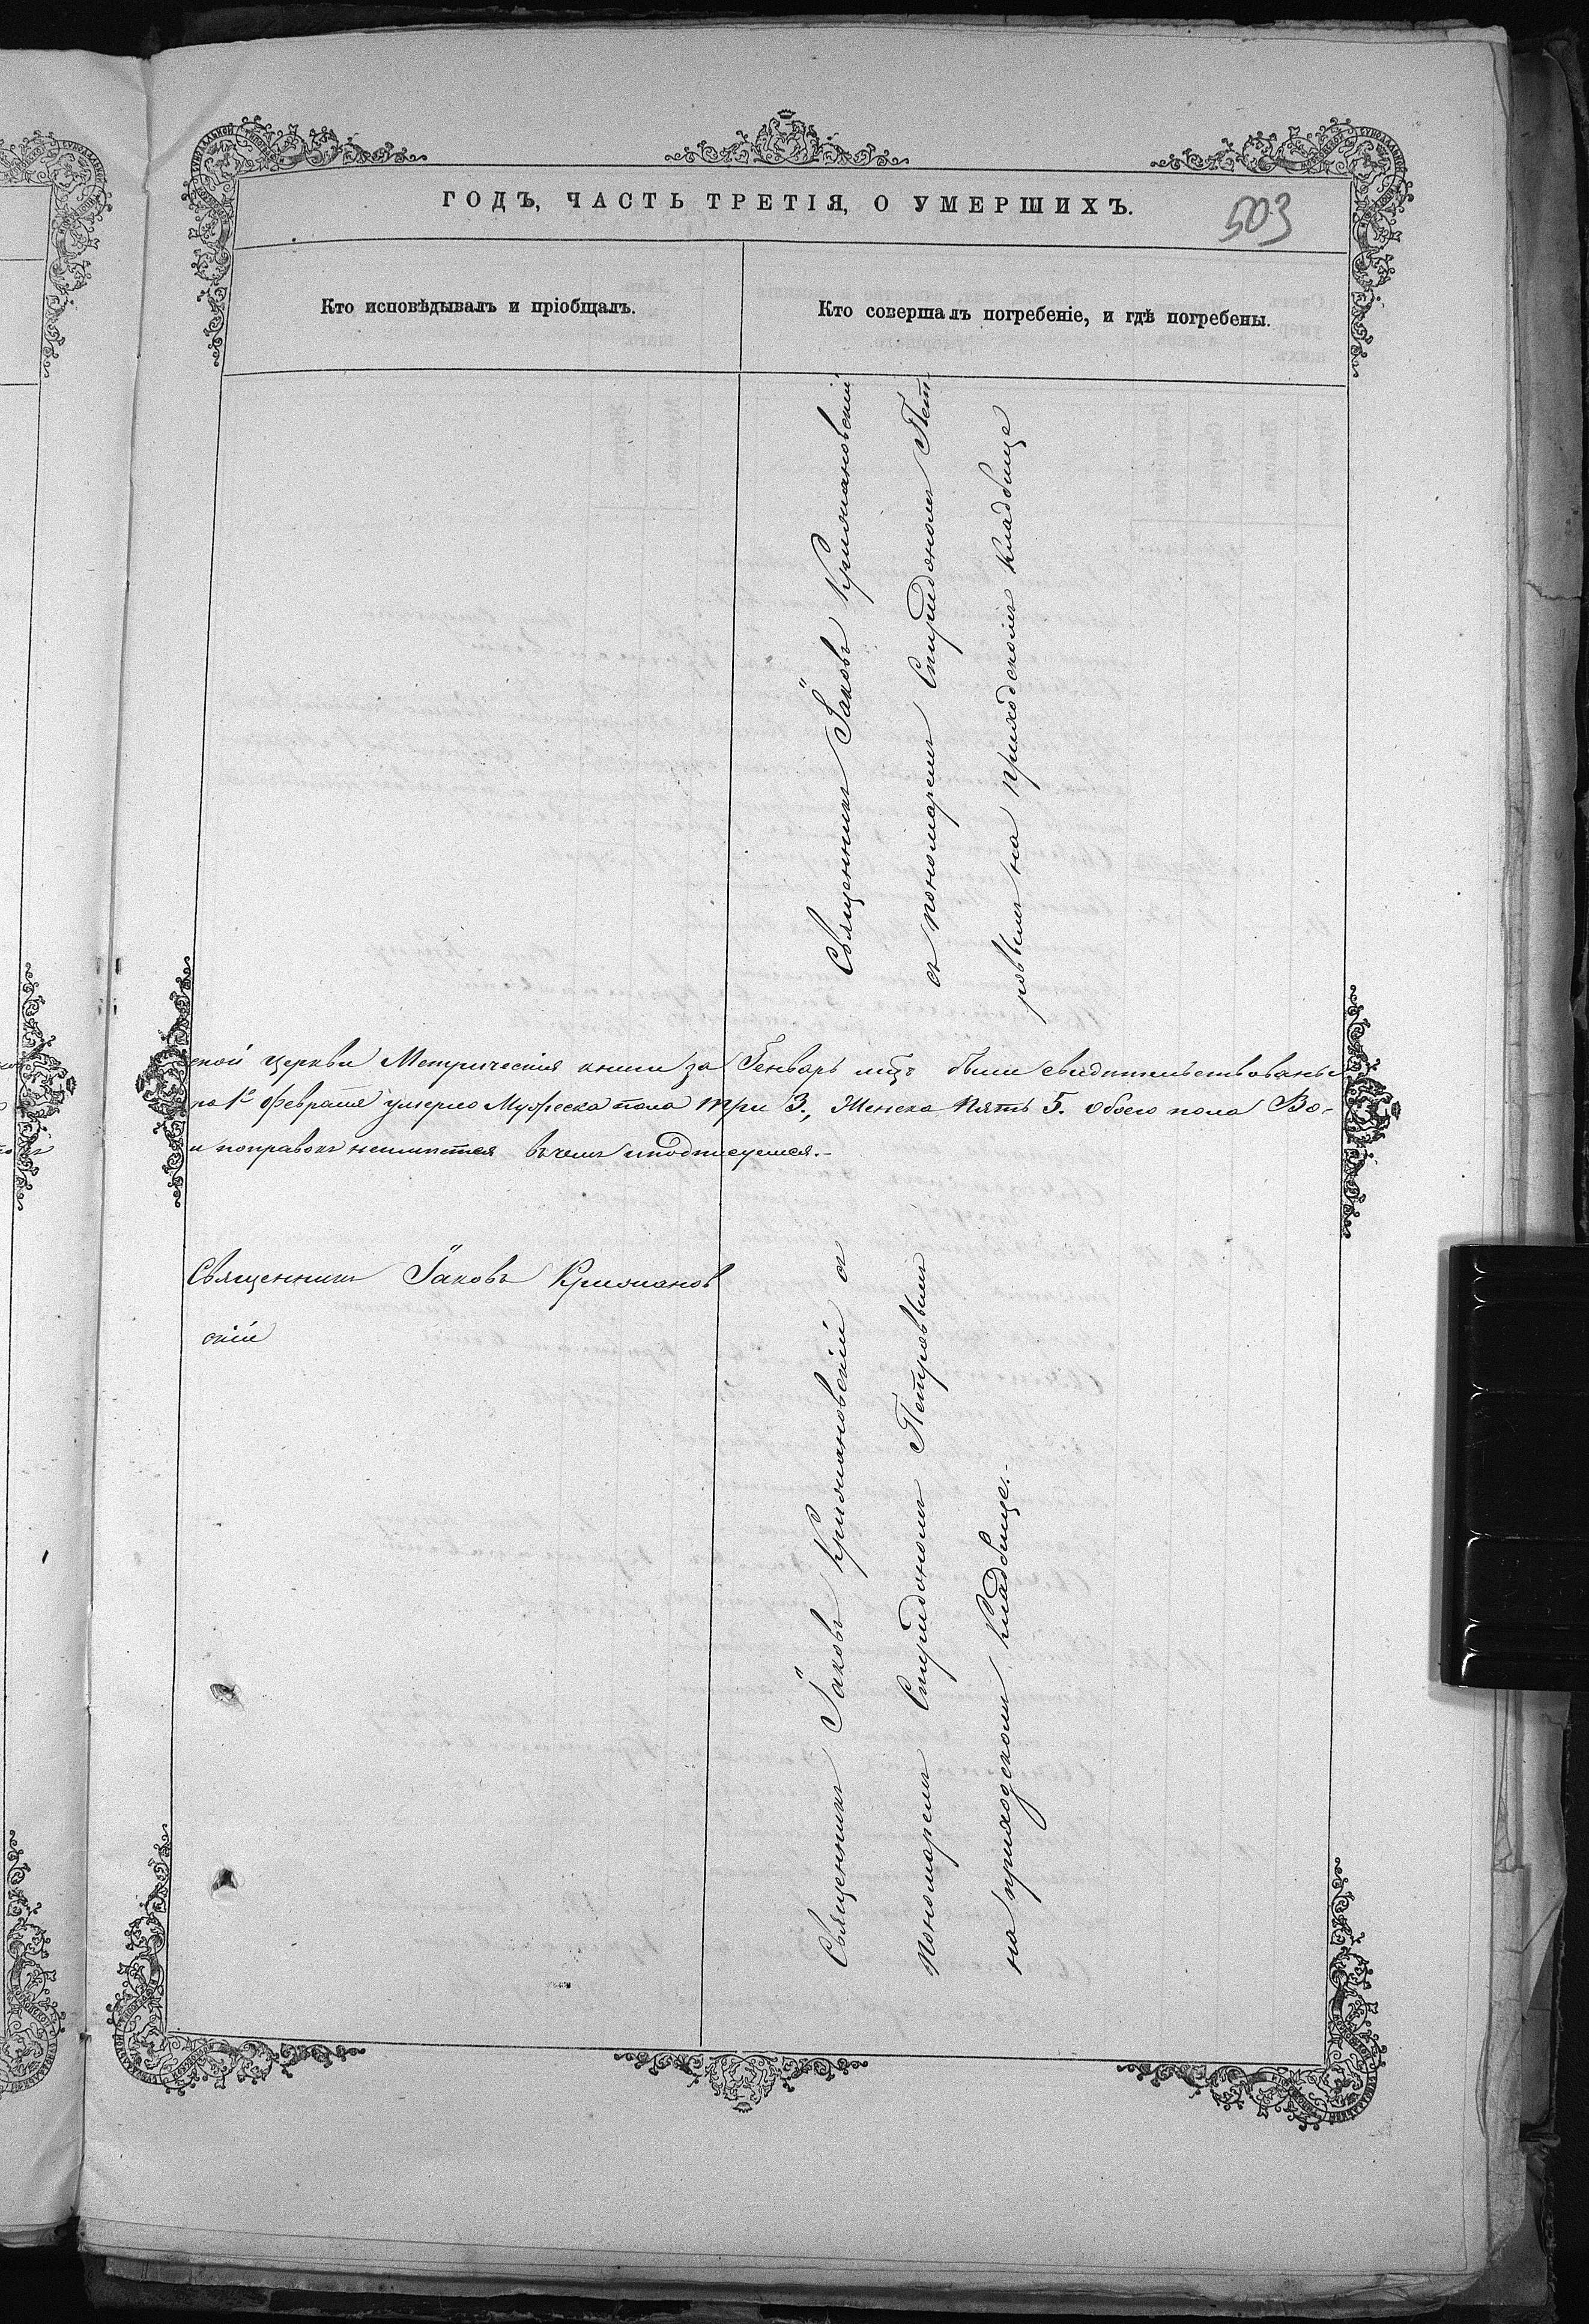 ГОДЪ, ЧАСТЬ ТРЕТІЯ, О УМЕРШИХЪ.
503
Кто исповѣдывалъ и пріобщалъ.
Кто совершалъ погребеніе, и гдѣ погребены.
Священникъ Іаковъ Крижановскій
съ пономаремъ Спиридономъ Пет-
ровымъ на приходскомъ кладбище
ской церкви Метрическія книги за Генварь мцъ были свидѣтельствованы
по 1е Февраля умерло Мужеска пола три 3., Женска пять 5. обоего пола Во-
и поправокъ неимѣется въ чемъ и подписуемся.-
Священникъ Іаковъ Крижанов
скій
Священникъ Іаковъ Крижановскій съ
пономаремъ Спиридономъ Петровымъ
на приходскомъ кладбище.-